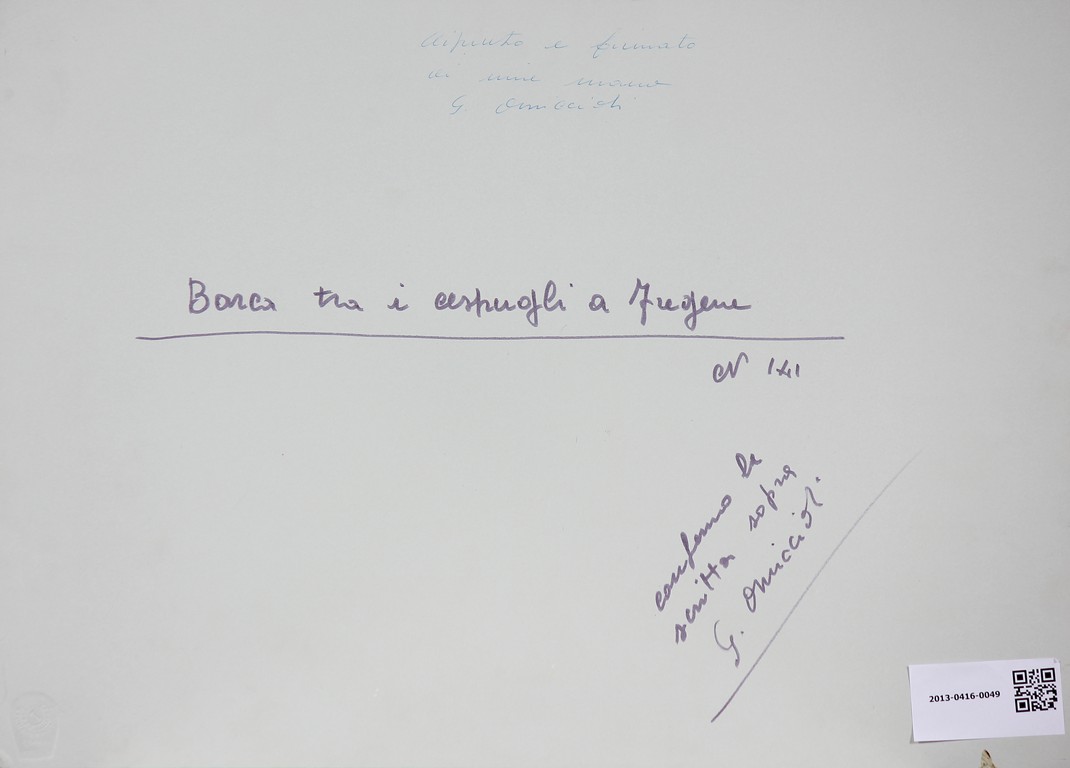 dipinto e firmato
di mia mano
G Omiccioli
Barca tra i cespugli a Fregene
N 141
confermo la
scritta sopra
G. Omiccioli
2013-0416-0049